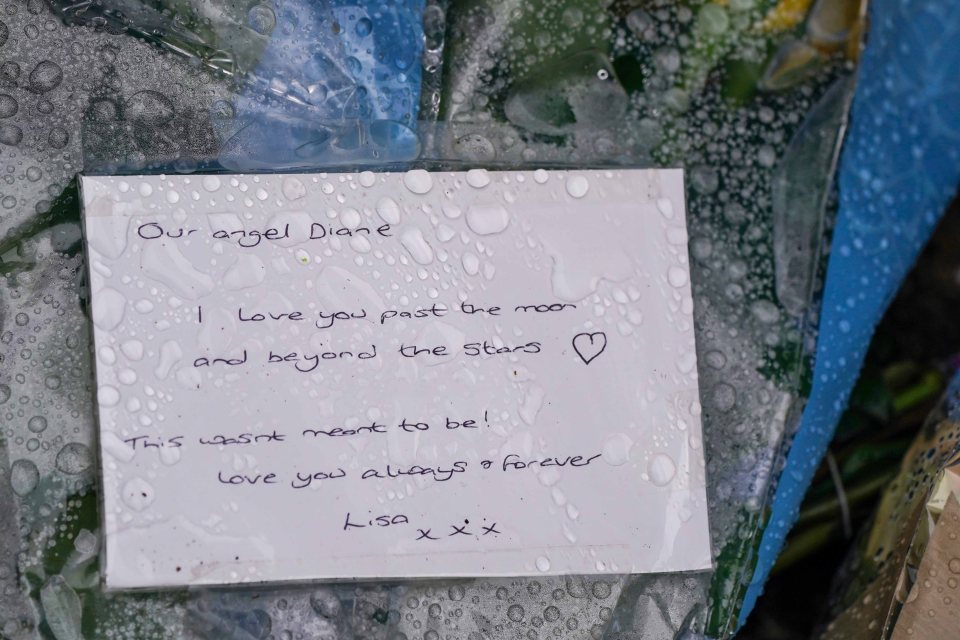 Our angel Diane
I love you past the moon
and beyond the stars ♡
This wasnt meant to be!
Love you always & forever
Lisa x x x